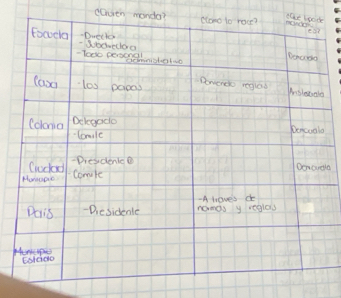 ¿Quien manda?
¿Como lo hace?
¿Que tipo de
mandato
es?
Escuela
-Director
-Subdirectora
-Todo personal
administrativo
Casa
-los papas
-Poniendo reglas
Colonia
Delegado
-Comite
Ciudad
Municipio
-Presidente
Comite
Pais
-Presidente
-A traves de
normas y reglas
Municipio
Estado